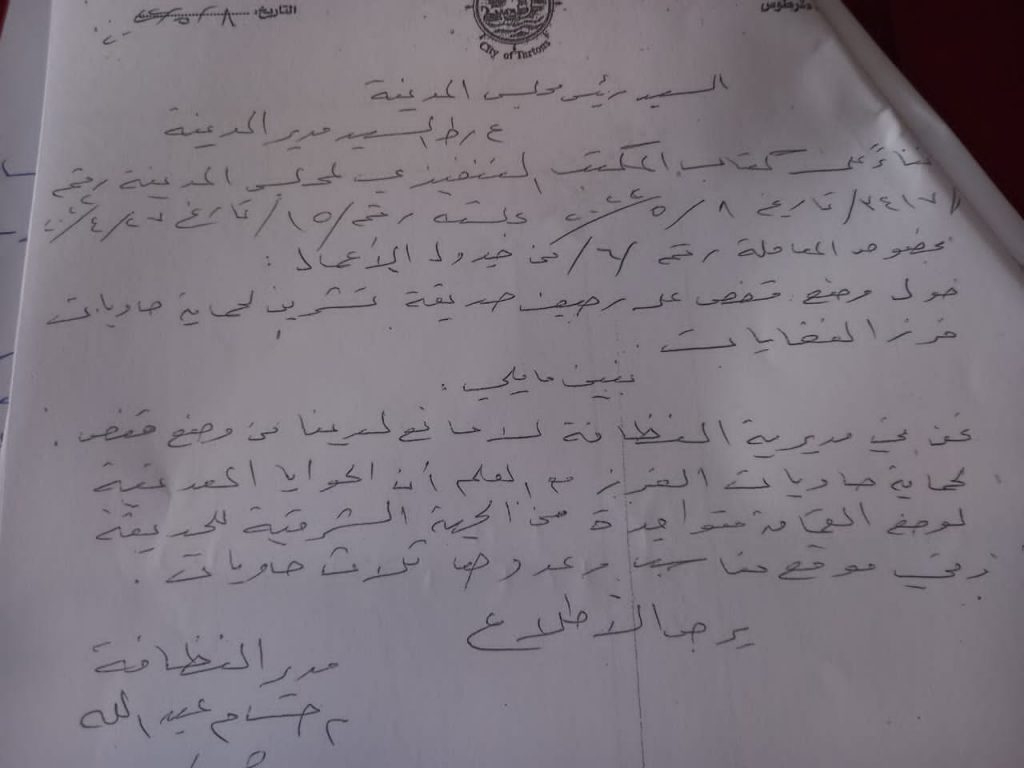 طرطوس
التاريخ: ٨/٥/
City of Tartous
السيد رئيس مجلس المدينة
ع/ط السيد مدير المدينة
بناءً على كتاب المكتب التنفيذي لمجلس المدينة رقم
تاريخ ٨/٥/ جلسته رقم/١٥/تاريخ
بخصوص المعاملة رقم /٦/ من جدول الأعمال :
حول وضع قفص على رصيف حديقة تشرين لحماية حاويات
فرز النفايات .
نبين مايلي :
نحن في مديرية النظافة لا مانع لدينا من وضع قفص
لحماية حاويات الفرز مع العلم أن الحوايا المعدنية
لوضع القمامة متواجدة من الجهة الشرقية للحديقة
وفي موقع مناسب وعددها ثلاث حاويات .
يرجى الاطلاع
مدير النظافة
م حسام عبد الله